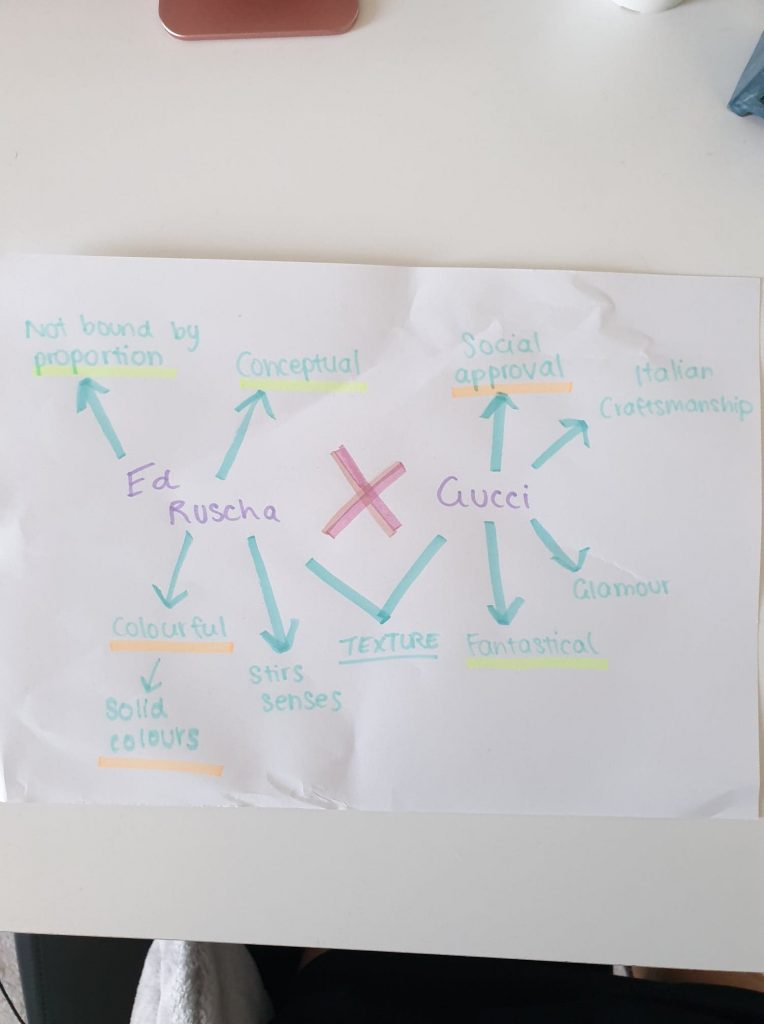 Not bound by
proportion
Conceptual
Social
approval
Italian
Craftsmanship
Ed
Ruscha
X
Gucci
Colourful
Solid
colours
Stirs
senses
TEXTURE
Fantastical
Glamour